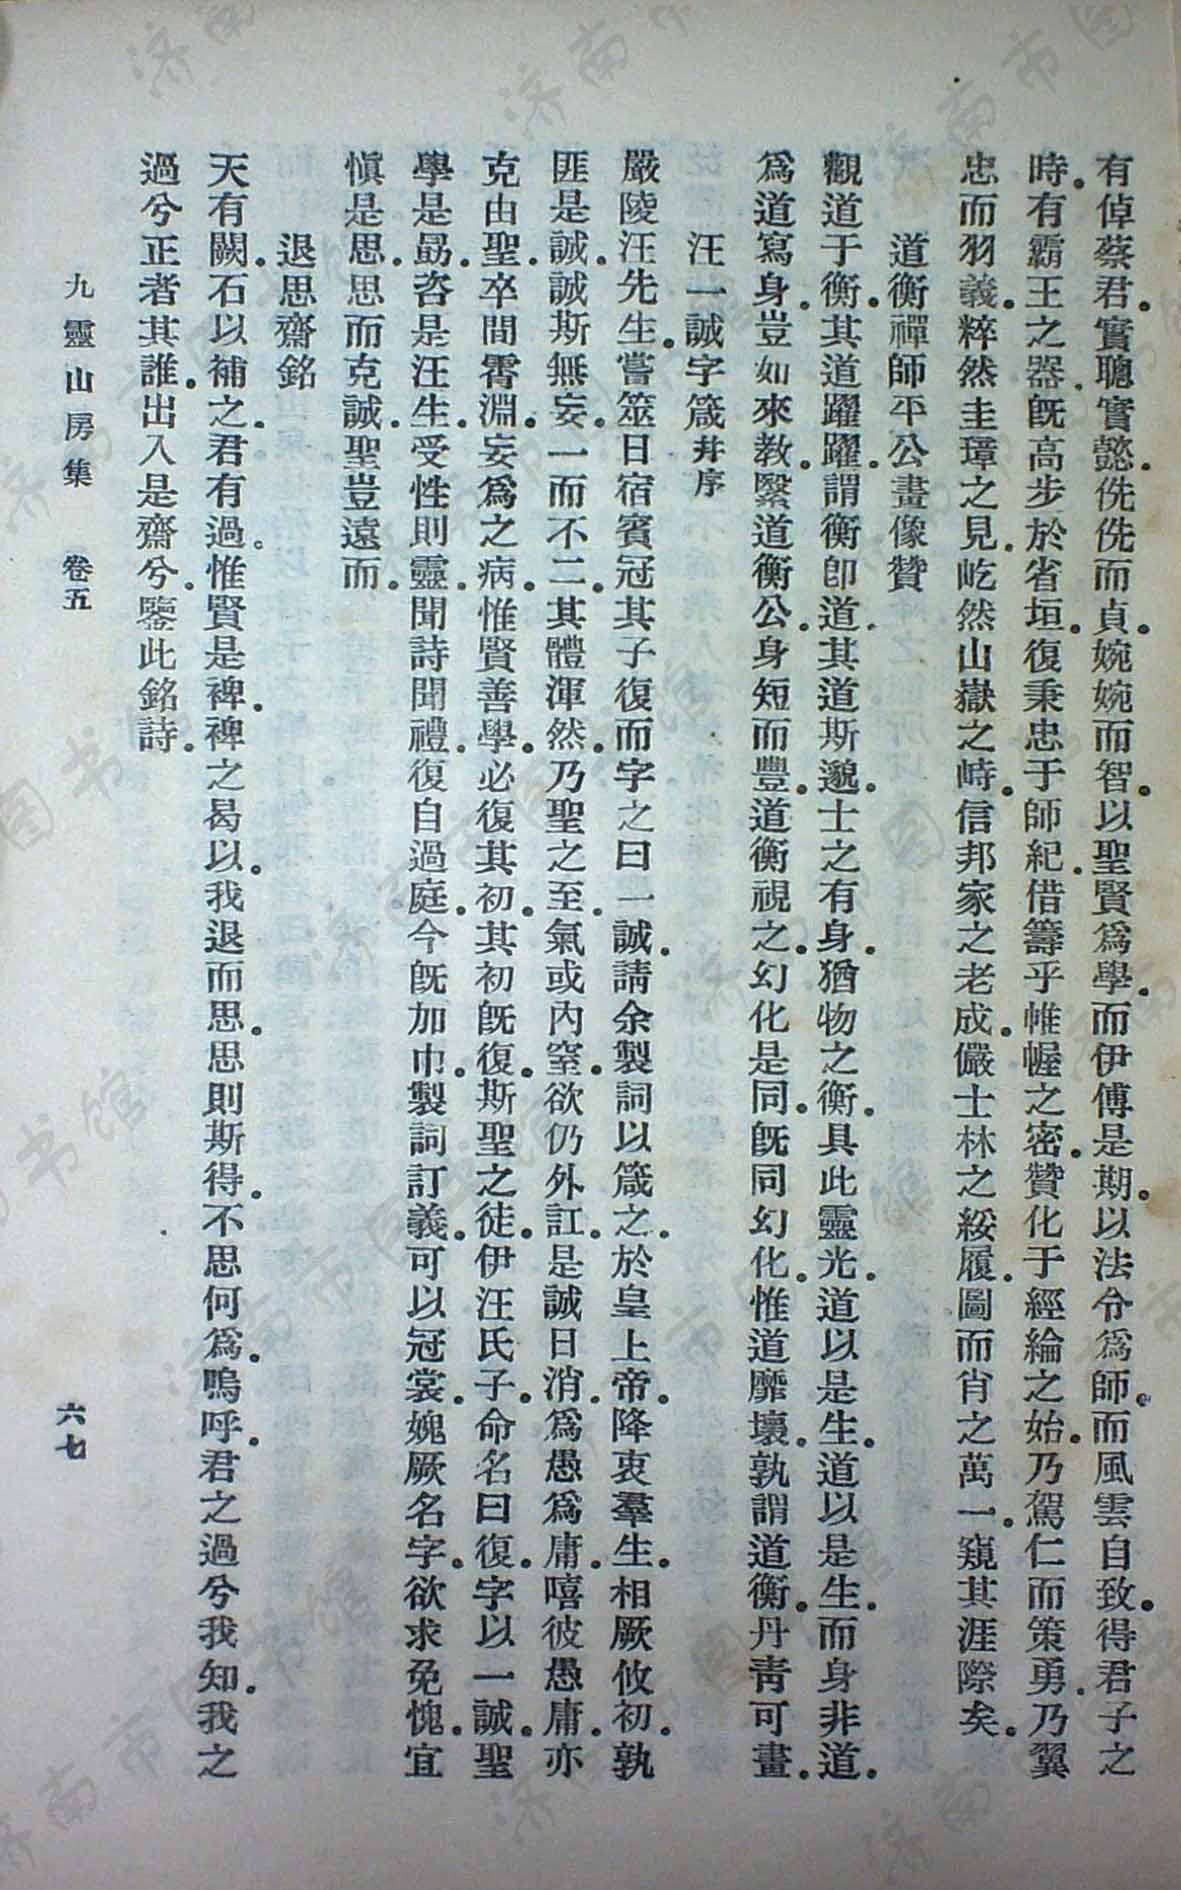 有倬蔡君。實聰實懿。侁侁而貞。婉婉而智。以聖賢爲學。而伊傅是期。以法令爲師。而風雲自致。得君子之
時。有霸王之器。旣高步於省垣。復秉忠于師紀。借籌乎帷幄之密。贊化于經綸之始。乃駕仁而策勇。乃翼
忠而羽義。粹然圭璋之見。屹然山嶽之峙。信邦家之老成。儼士林之綏履。圖而肖之萬一。窺其涯際矣。
道衡禪師平公畫像贊
觀道于衡。其道躍躍。謂衡卽道。其道斯邈。士之有身。猶物之衡。具此靈光。道以是生。道以是生。而身非道。
爲道寫身。豈如來教。繄道衡公。身短而豐。道衡視之。幻化是同。旣同幻化。惟道靡壞。孰謂道衡。丹靑可畫。
汪一誠字箴幷序
嚴陵汪先生。嘗筮日宿賓冠其子復而字之曰一誠。請余製詞以箴之。於皇上帝。降衷羣生。相厥攸初。孰
匪是誠。誠斯無妄。一而不二。其體渾然。乃聖之至。氣或內窒。欲仍外訌。是誠日消。爲愚爲庸。嘻彼愚庸。亦
克由聖。卒間霄淵。妄爲之病。惟賢善學。必復其初。其初旣復。斯聖之徒。伊汪氏子。命名曰復。字以一誠。聖
學是勗。咨是汪生。受性則靈。聞詩聞禮。復自過庭。今旣加巾。製詞訂義。可以冠裳。媿厥名字。欲求免愧。宜
愼是思。思而克誠。聖豈遠而。
退思齋銘
天有闕。石以補之。君有過。惟賢是裨。裨之曷以。我退而思。思則斯得。不思何爲。嗚呼。君之過兮我知。我之
過兮正者其誰。出入是齋兮。鑒此銘詩。
九靈山房集 卷五
六七